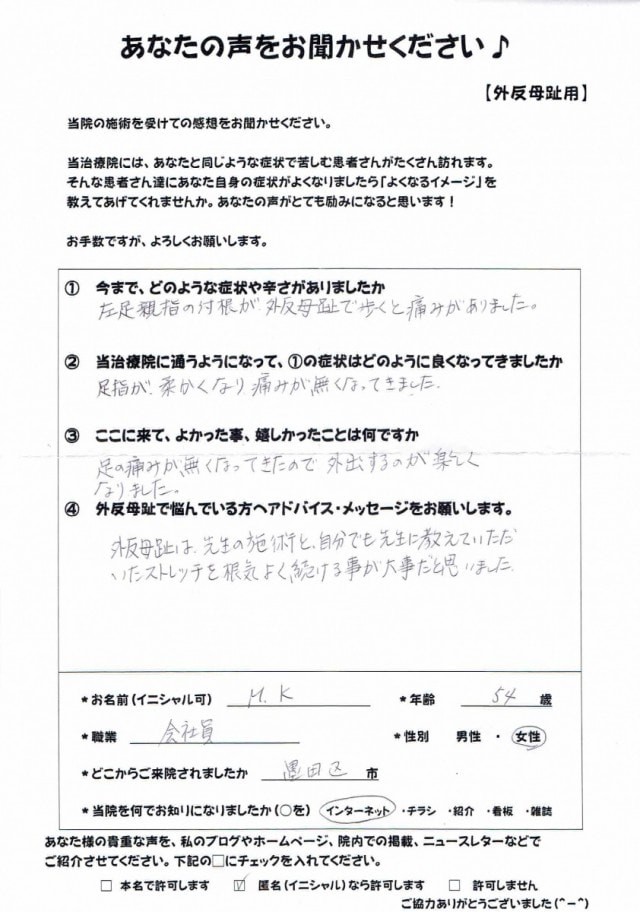 あなたの声をお聞かせください♪
【外反母趾用】
当院の施術を受けての感想をお聞かせください。
当治療院には、あなたと同じような症状で苦しむ患者さんがたくさん訪れます。
そんな患者さん達にあなた自身の症状がよくなりましたら「よくなるイメージ」を
教えてあげてくれませんか。あなたの声がとても励みになると思います！
お手数ですが、よろしくお願いします。
① 今まで、どのような症状や辛さがありましたか
左足親指の付根が外反母趾で歩くと痛みがありました。
② 当治療院に通うようになって、①の症状はどのように良くなってきましたか
足指が、柔かくなり痛みが無くなってきました.
③ ここに来て、よかった事、嬉しかったことは何ですか
足の痛みが無くなってきたので外出するのが楽しく
なりました。
④ 外反母趾で悩んでいる方へアドバイス・メッセージをお願いします。
外反母趾は、先生の施術と、自分でも先生に教えていただ
いたストレッチを根気よく続ける事が大事だと思いました.
*お名前（イニシャル可） M.K *年齢 54 歳
*職業 会社員 *性別 男性 ・ 女性
*どこからご来院されましたか 墨田区 市
*当院を何でお知りになりましたか（○を） インターネット ・チラシ ・紹介 ・看板 ・雑誌
あなた様の貴重な声を、私のブログやホームページ、院内での掲載、ニュースレターなどで
ご紹介させてください。下記の□にチェックを入れてください。
□ 本名で許可します ☑ 匿名（イニシャル）なら許可します □ 許可しません
ご協力ありがとうございました(^-^)